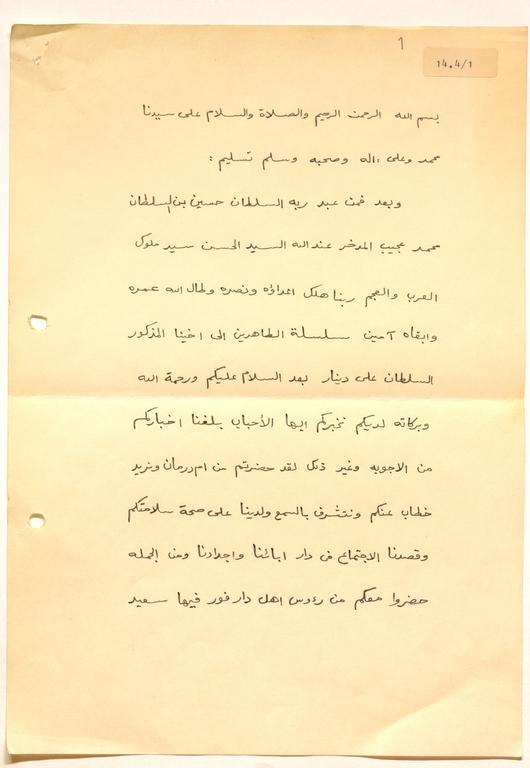 1
14.4/1
بسم الله الرحمن الرحيم والصلاة والسلام على سيدنا
محمد وعلى ءاله وصحبه وسلم تسليم :
وبعد فمن عبد ربه السلطان حسين بن السلطان
محمد عجيب المدخر عند الله السيد الحسن سيد ملوك
العرب والعجم ربنا هلك اعداؤه ونصره وطال الله عمره
وابقاه آمين سلسلة الطاهرين الى اخينا المذكور
السلطان على دينار بعد السلام عليكم ورحمة الله
وبركاته لديكم نخبركم ايها الأحباب بلغنا اخباركم
من الاجوبه وغير ذلك لقد حضرتم من ام درمان ونريد
خطاب عنكم ونتشرف بالسمع ولدينا على صحة سلامتكم
وقصدنا الاجتماع فى دار ابائنا واجدادنا ومن الجمله
حضروا معكم من رءوس اهل دار فور فيها سعيد